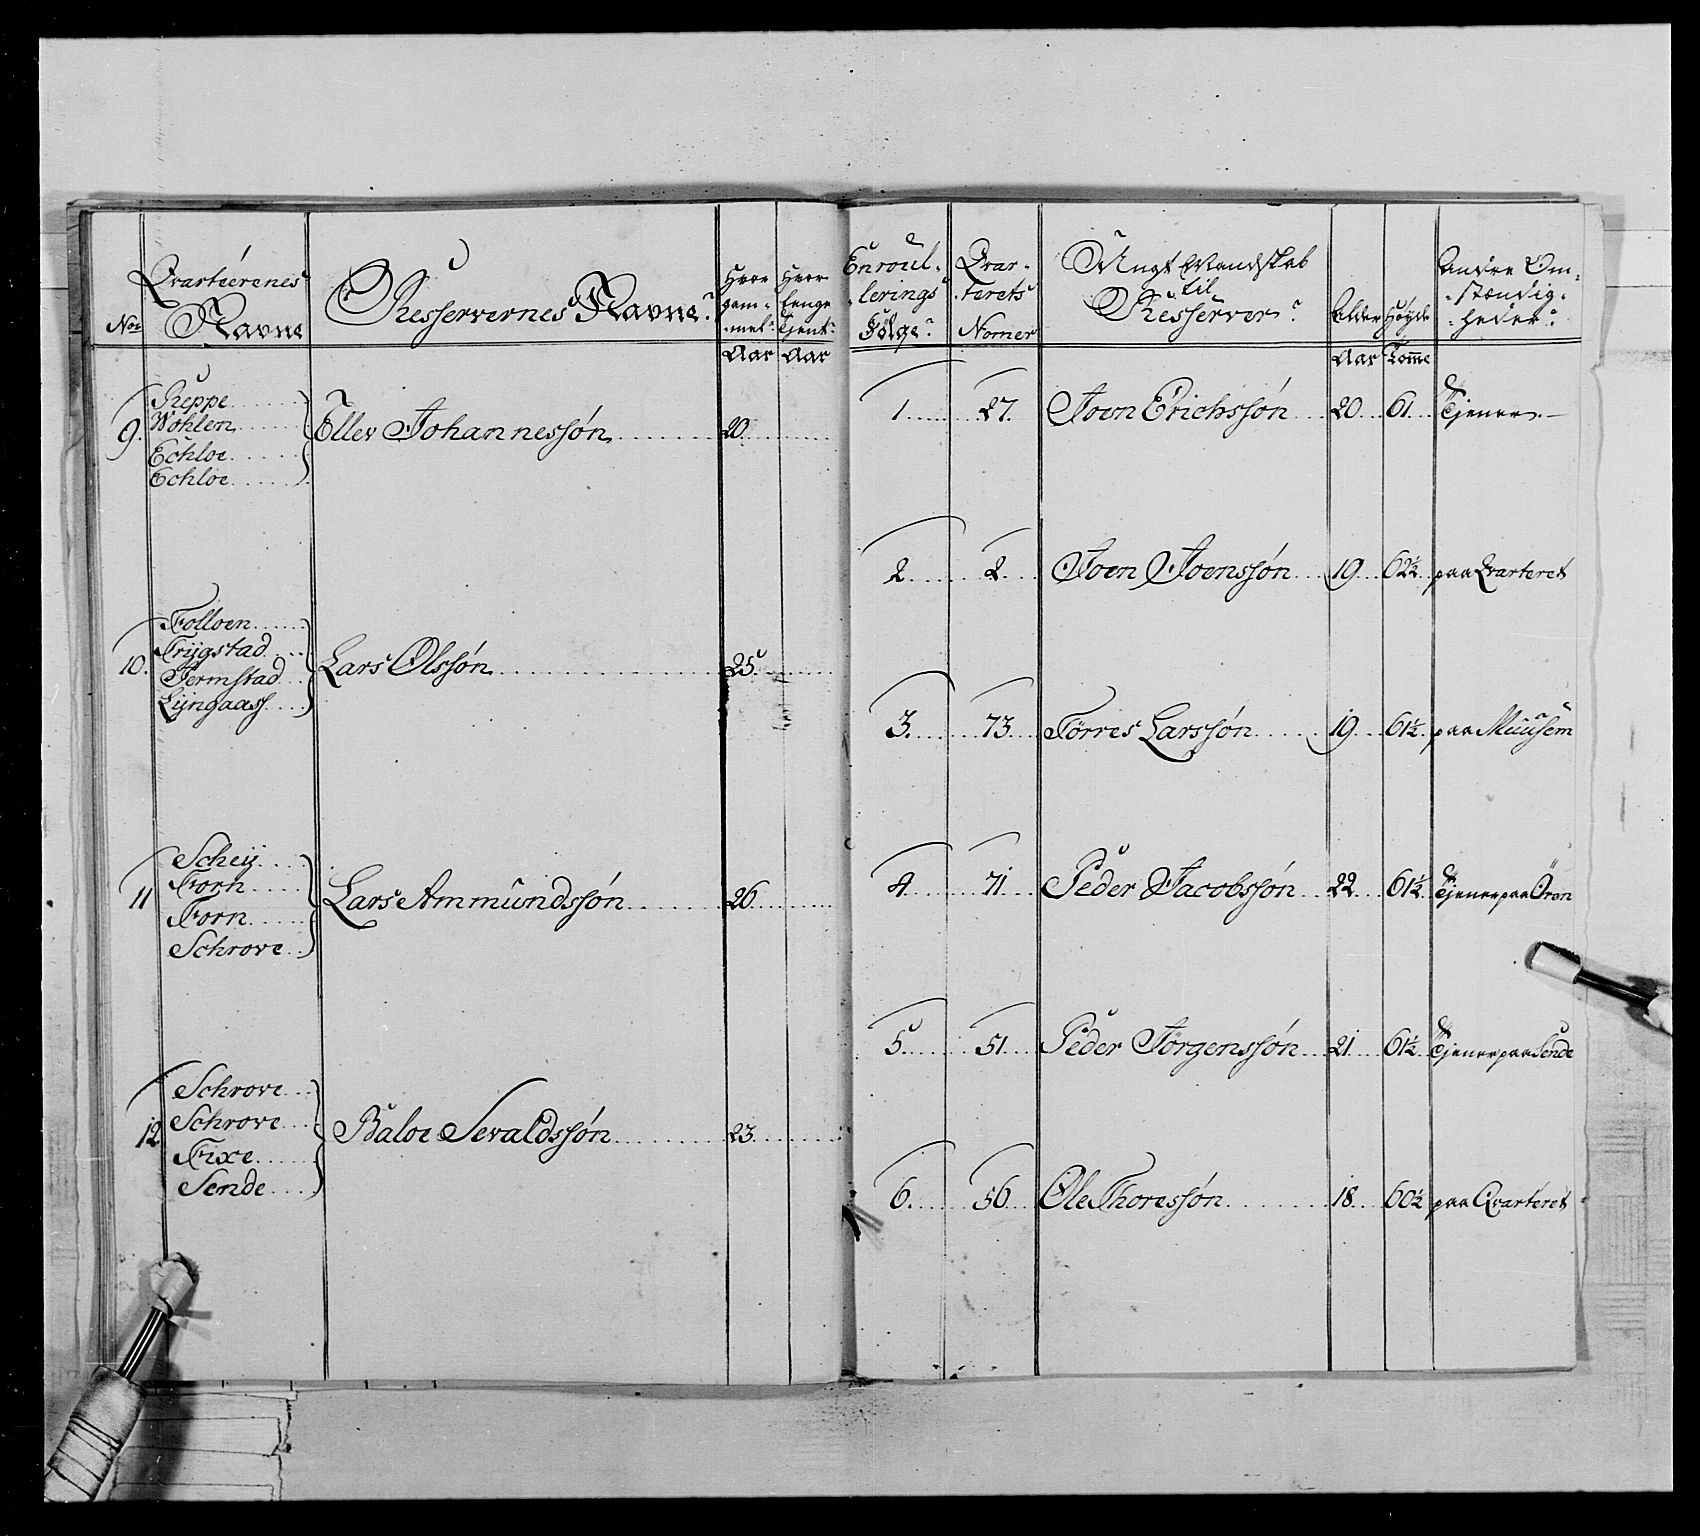 No:
Qvarteerenes
Navne
Resserverne's Navne:
Hvor
gam-
-mel:
Aar
Hvor
lenge
Tjent:
Aar
9.
Reppe
Wohlen
Echloe
Echloe
Ellev Johannessøn 20.
10.
Folloen
Frygstad
Jermstad
Lijngaass
Lars Olssøn 25.
11
Scheij
Forn
Forn
Schrove
Lars Ammundssøn 26
12
Schrove
Schrove
Fixe
Sende
Baloe Sevaldssøn 23
Enroul-
-lerings
Følge:
Qvar-
-terets
Nomer
Ungt Mandskab
til
Resserver:
Alder
Aar
Høyde
Tomme
Andre Om-
-stændig-
-heder:
1. 27. Joen Erichssøn 20 61. Tjener
2. 2. Joen Joenssøn 19 62½ paa Qvarteret
3. 73. Törres Larssøn 19 61½ paa Muusem
4. 71. Peder Jacobssøn 22 61½ Tjener paa Ören
5. 51. Peder Jörgenssøn 21 61½ Tjener paa Sende
6. 56. Ole Thoressøn 18 60½ paa Qvarteret